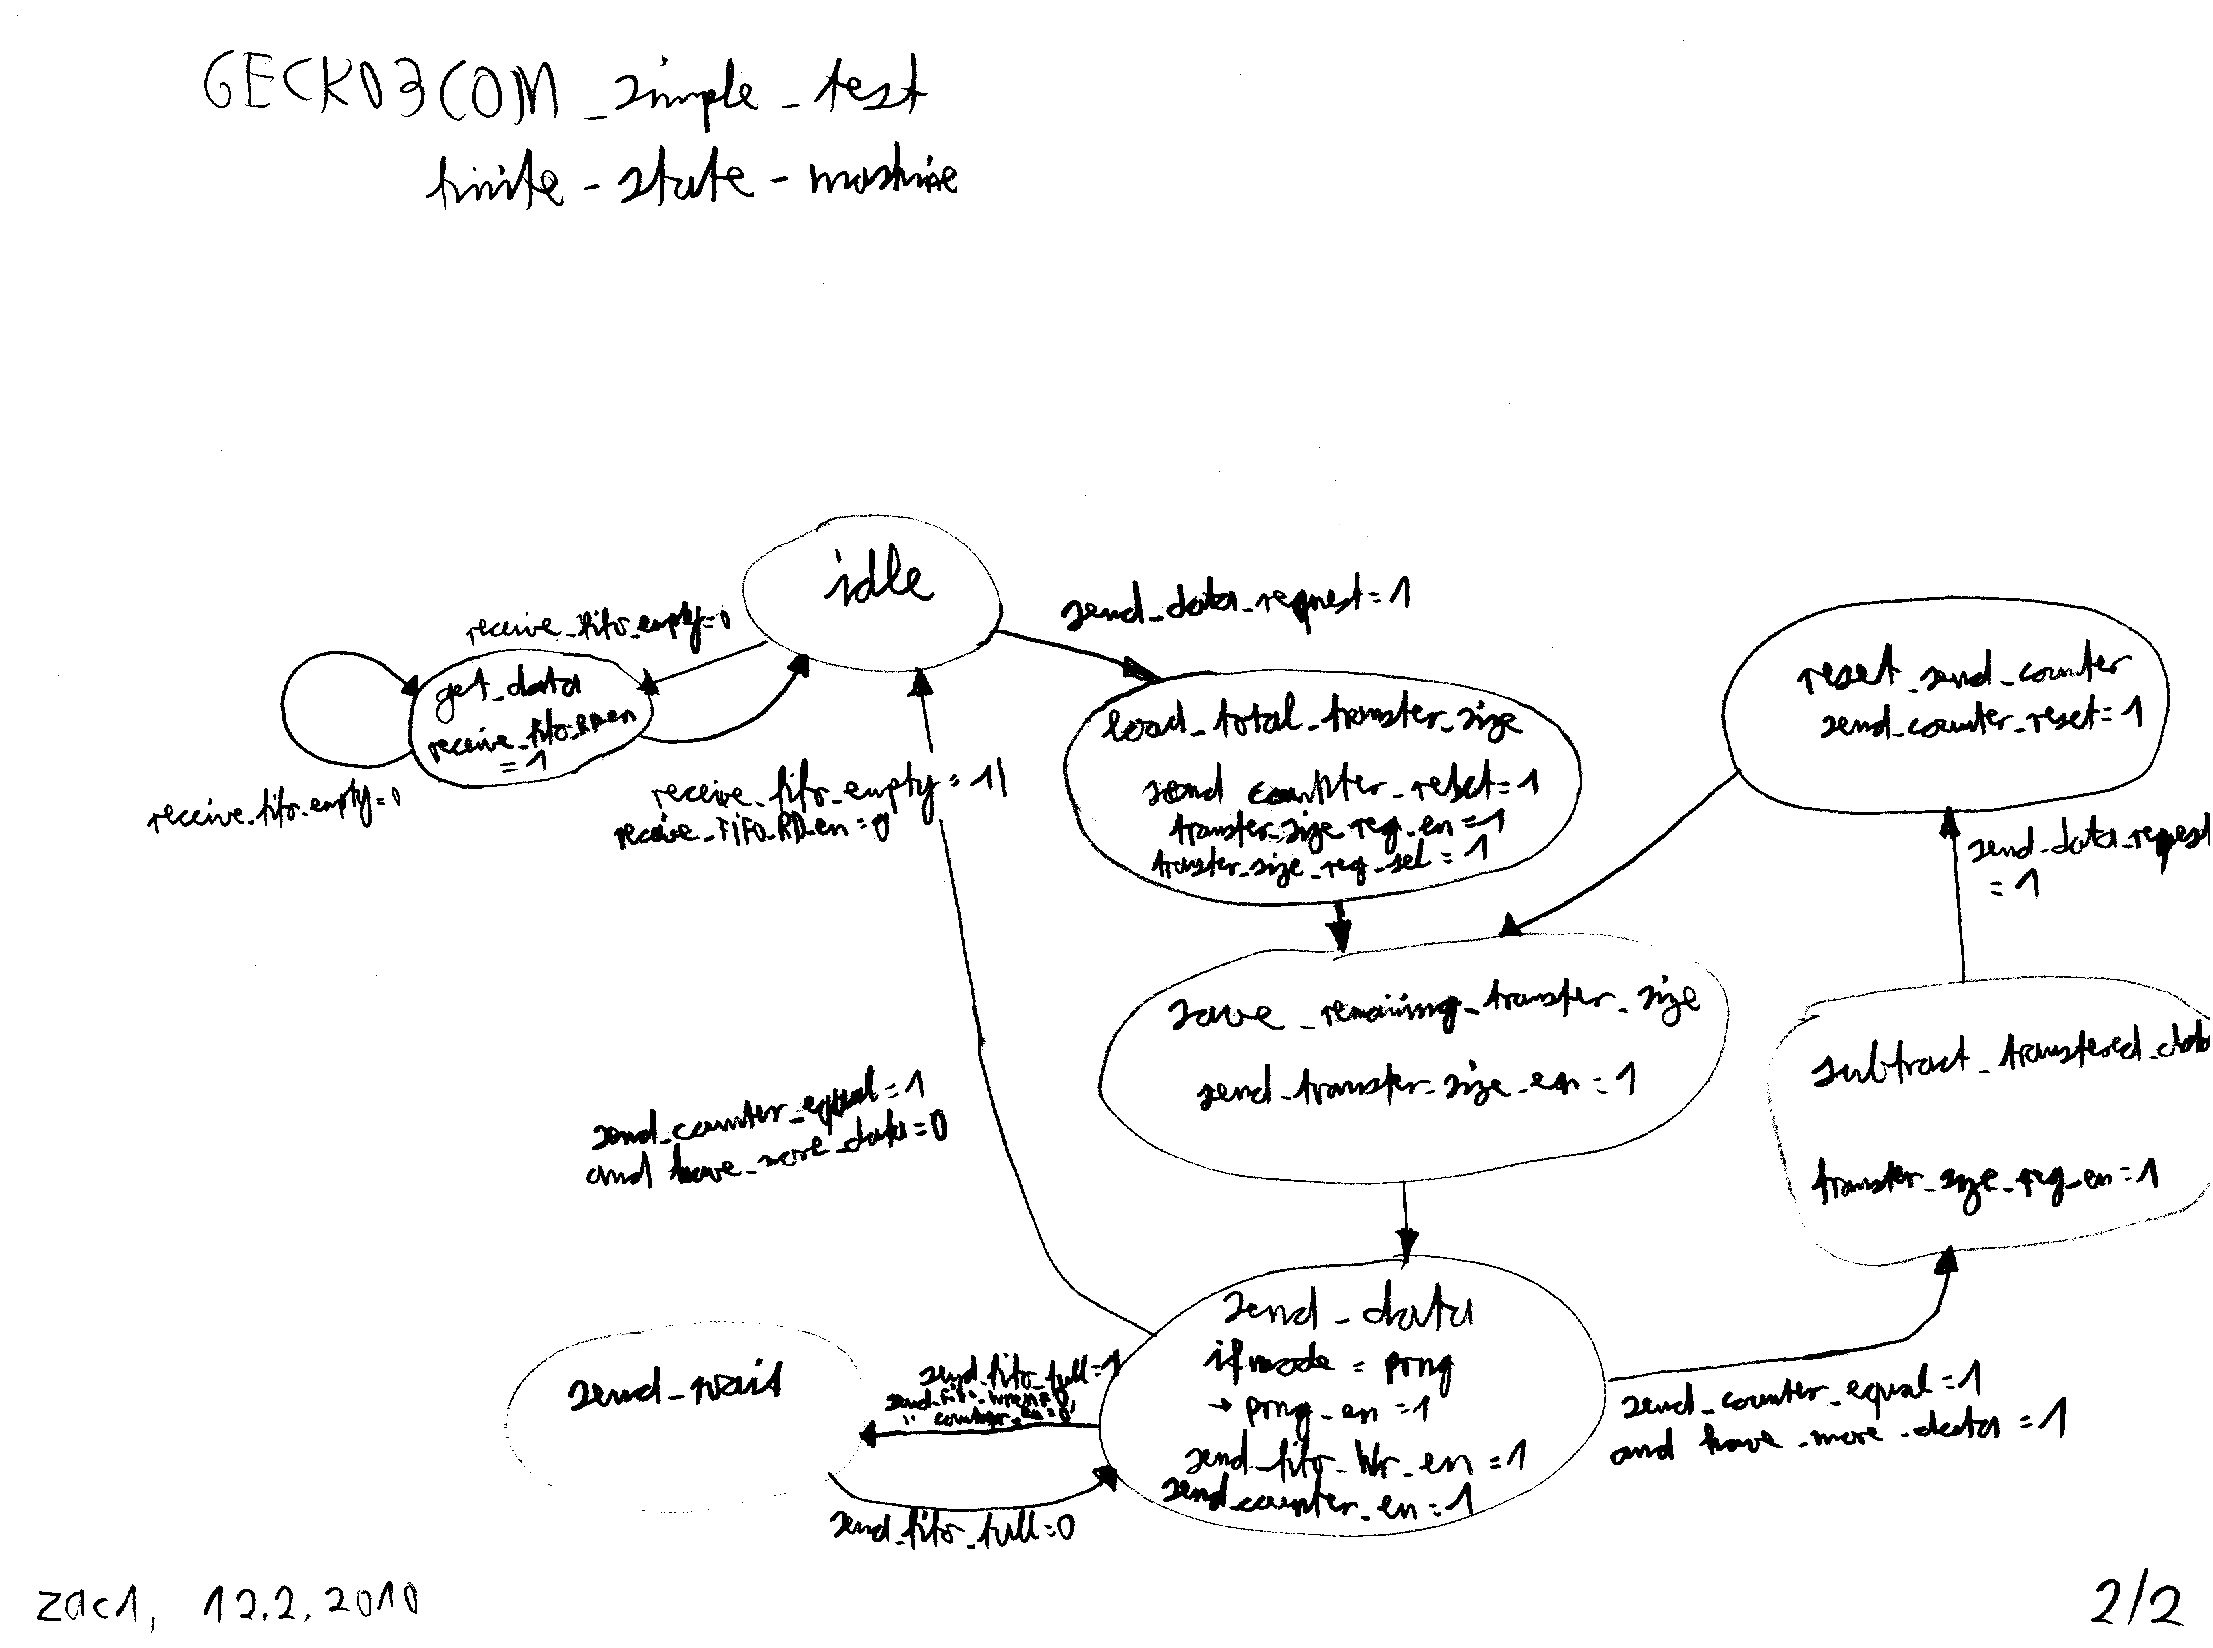 GECKO3COM_simple_test
finite-state-mashine
idle
send_data_request=1
receive_fifo_empty=0
get_data
receive_fifo_RD_en
=1
receive_fifo_empty=0
receive_fifo_empty=1|
receive_FIFO_RD_en=0
load_total_transfer_size
send counter_reset=1
transfer_size_reg_en=1
transfer_size_reg_sel=1
reset_send_counter
send_counter_reset=1
send_data_request
=1
save_remaining_transfer_size
send_transfer_size_en=1
subtract_transfered_data
transfer_size_reg_en=1
send_counter_equal=1
and have_more_data=0
send_data
if mode = prng
→ prng_en=1
send_fifo_Wr_en=1
send_counter_en=1
send_counter_equal=1
and have_more_data=1
send_wait
send_fifo_full=1
send_fifo_wr_en=0,
" counter_en=0,
send_fifo_full=0
zac1, 12.2.2010
2/2